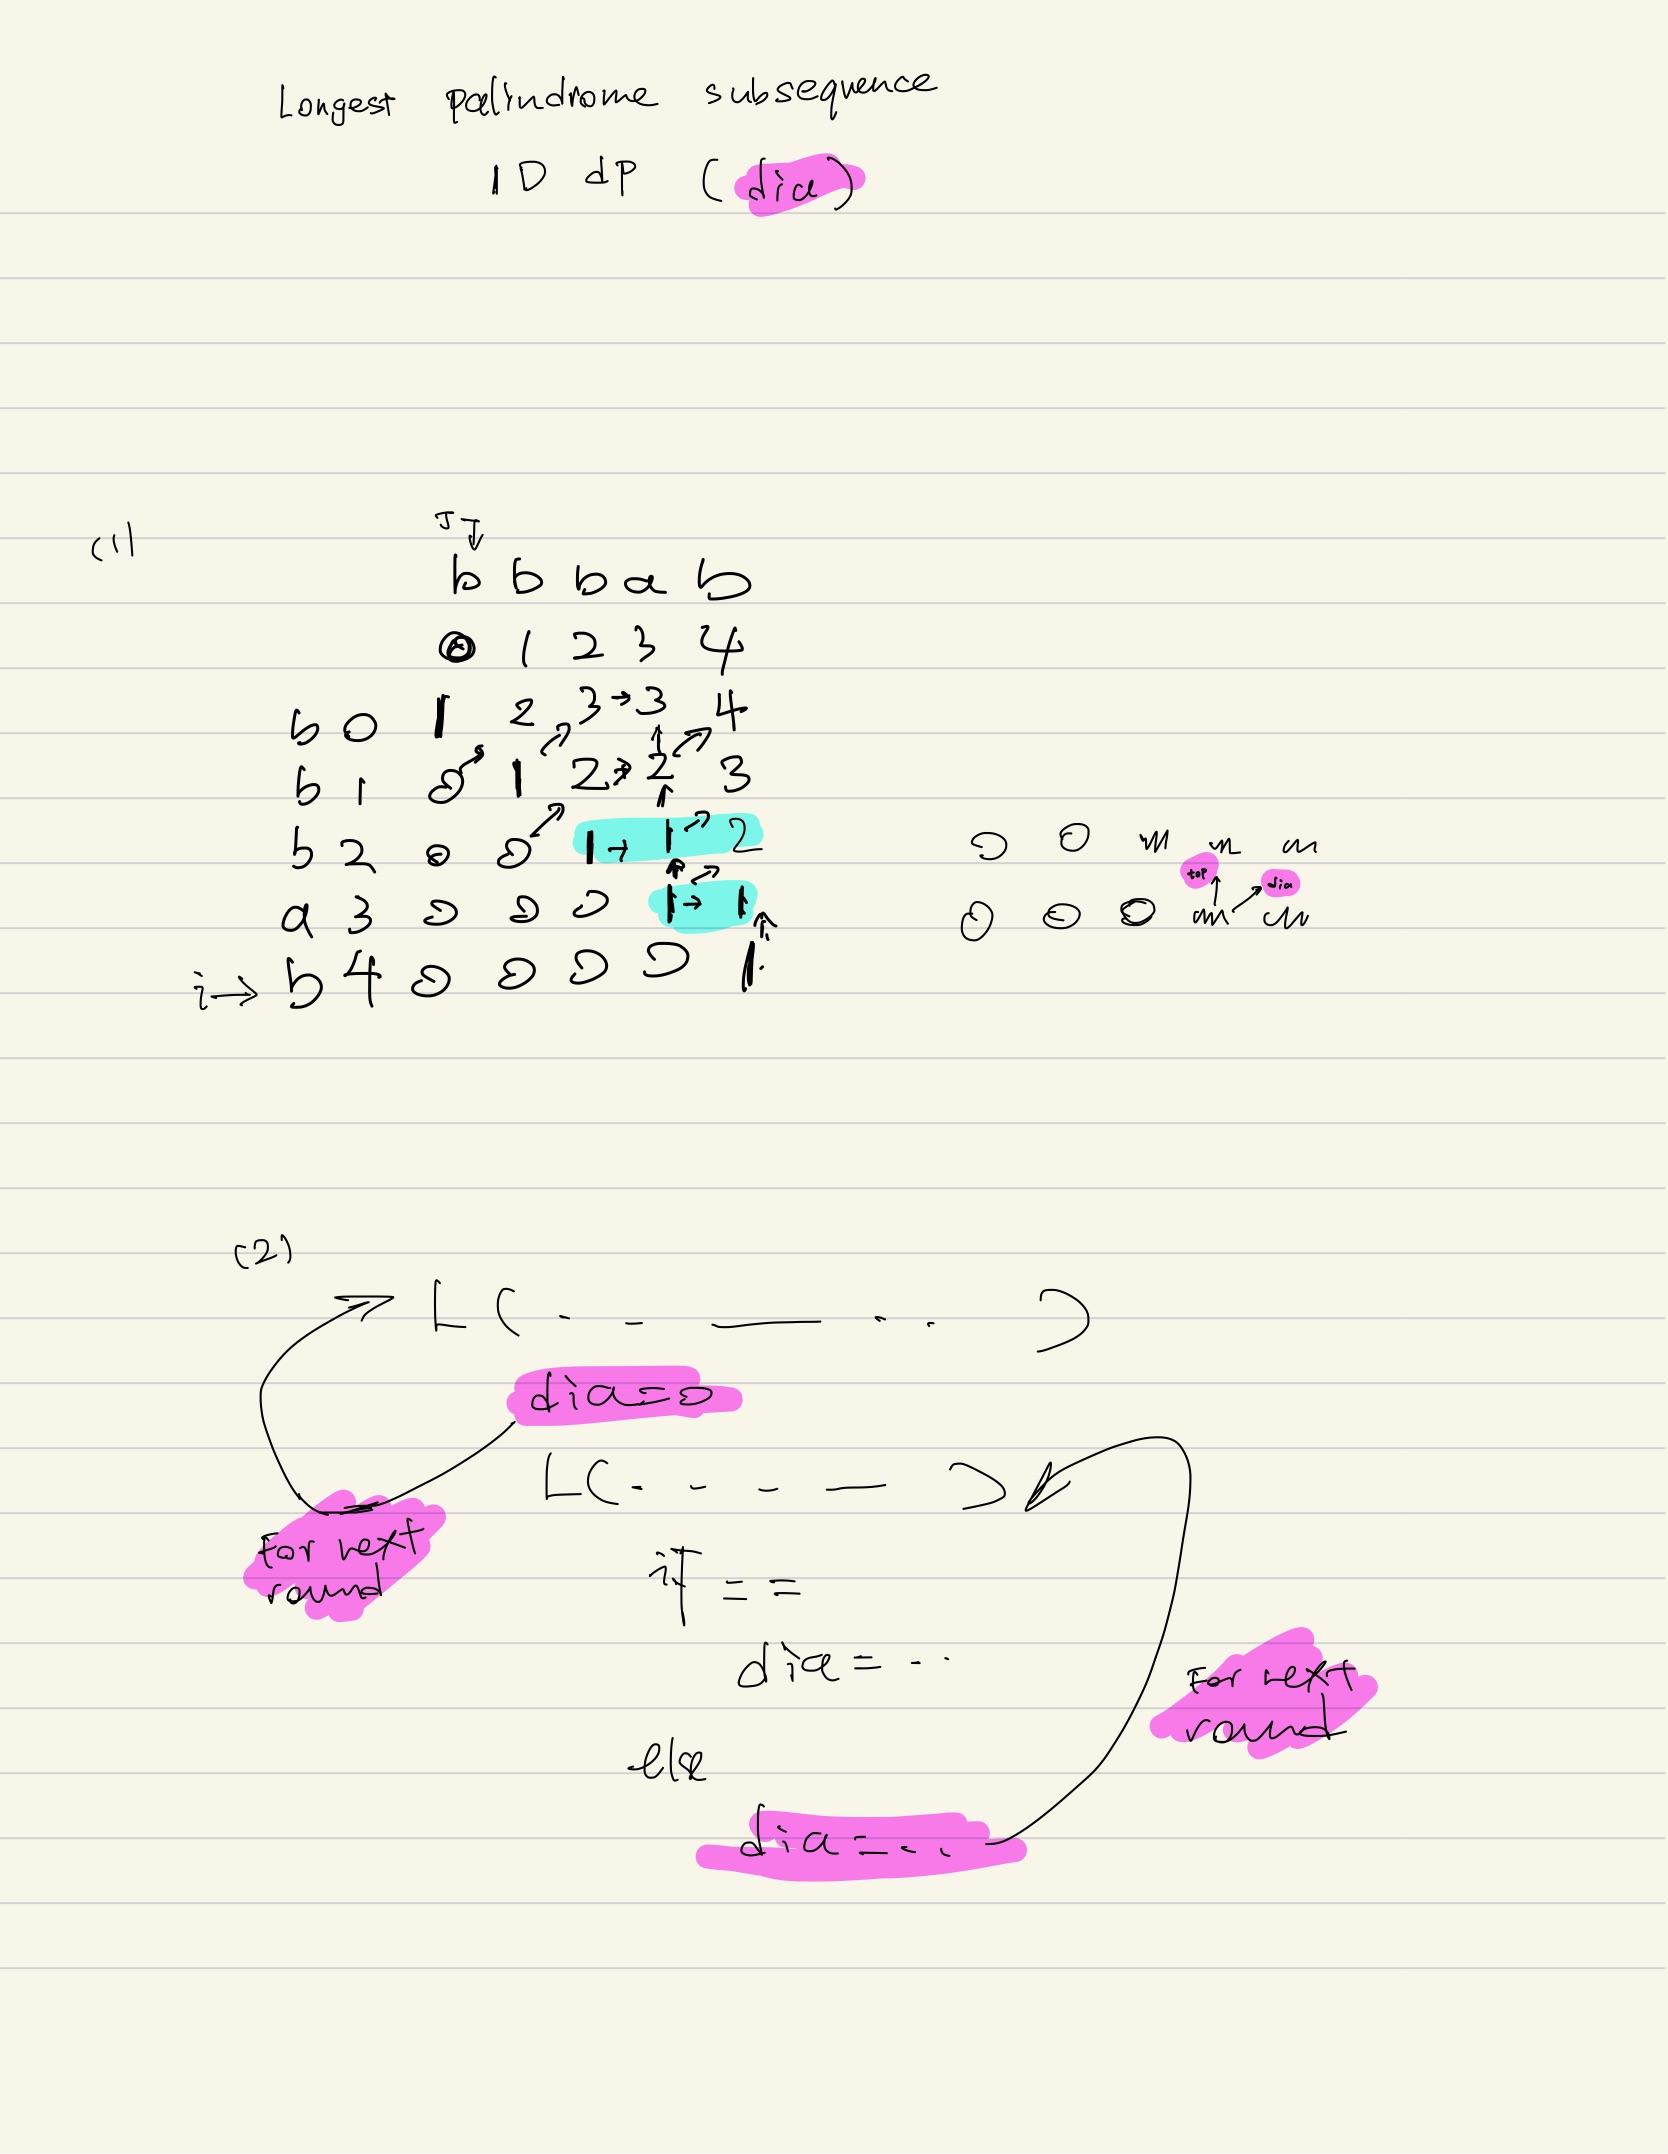 Longest palindrome subsequence
1D dp (dia)
(1)
J
b b b a b
0 1 2 3 4
b 0 1 2 3 → 3 4
b 1 0 1 2 → 2 3
b 2 0 0 1 → 1 2
a 3 0 0 0 1 → 1
i → b 4 0 0 0 0 1
top
dia
(2)
L ( - - — . . )
dia = 0
L ( - - - — )
For next
round
if ==
dia = ..
else
dia = ...
For next
round